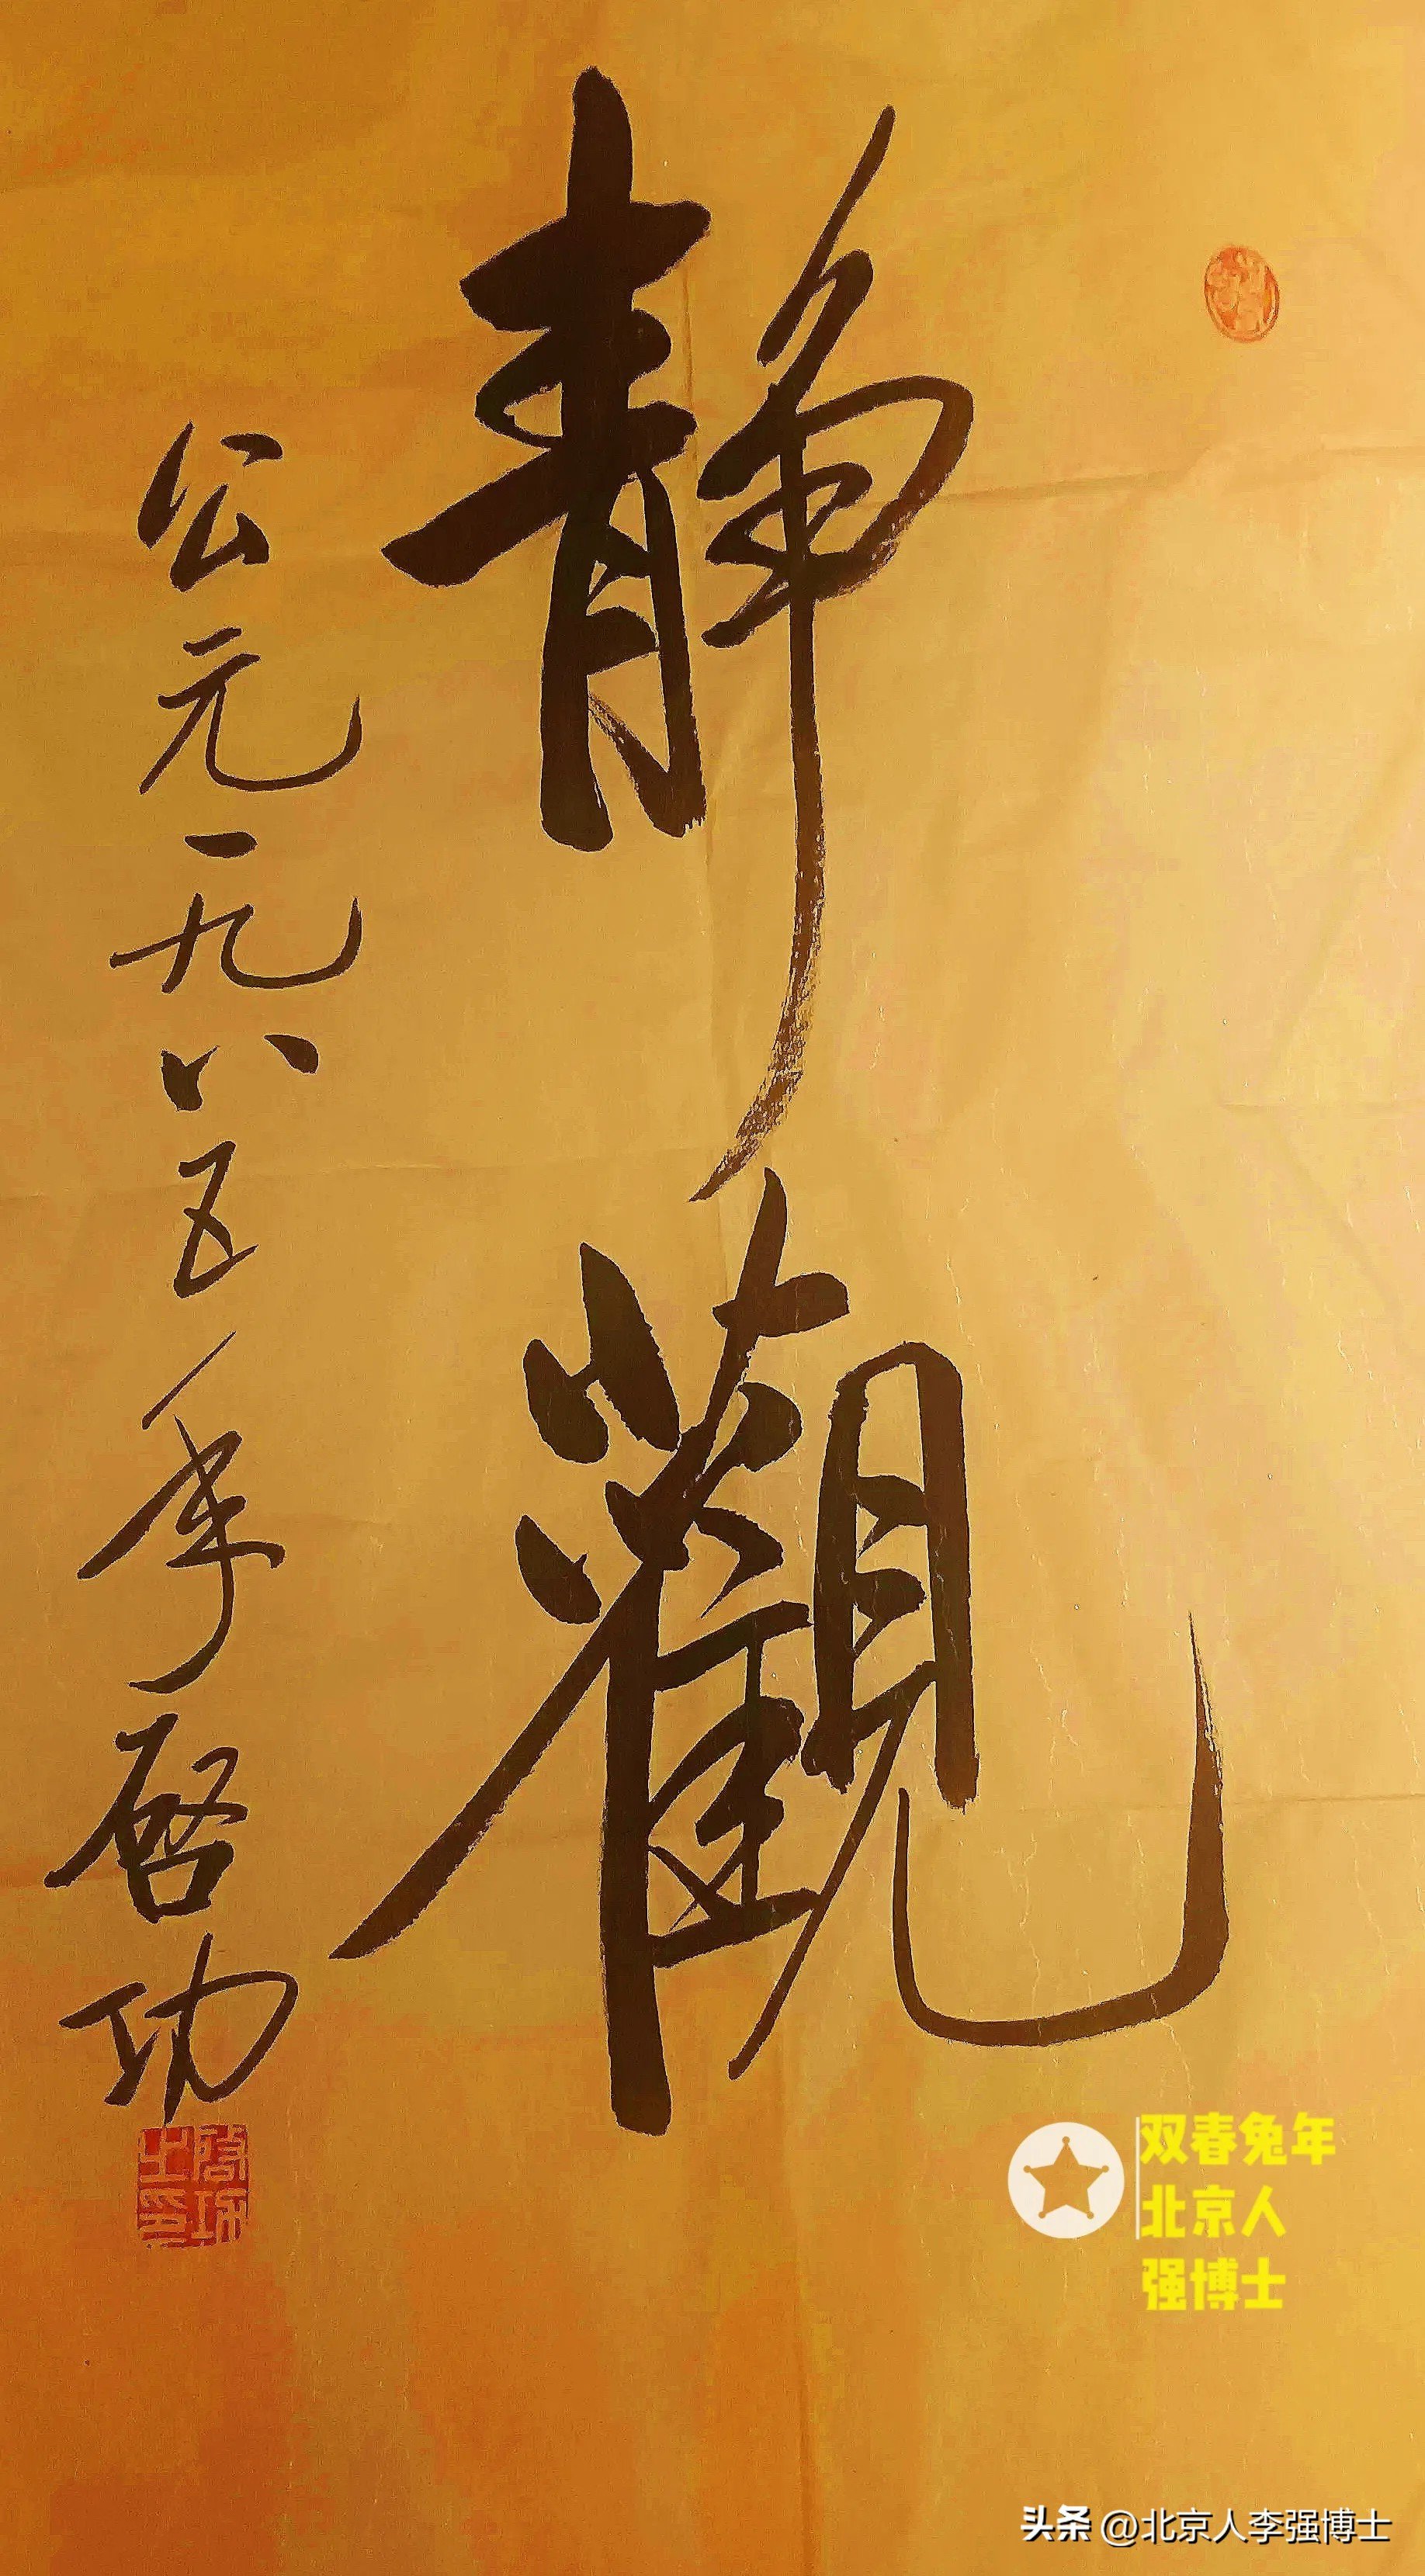 静觀
公元一九八五年啓功
啓功之印
双春兔年
北京人
强博士
头条 @北京人李强博士